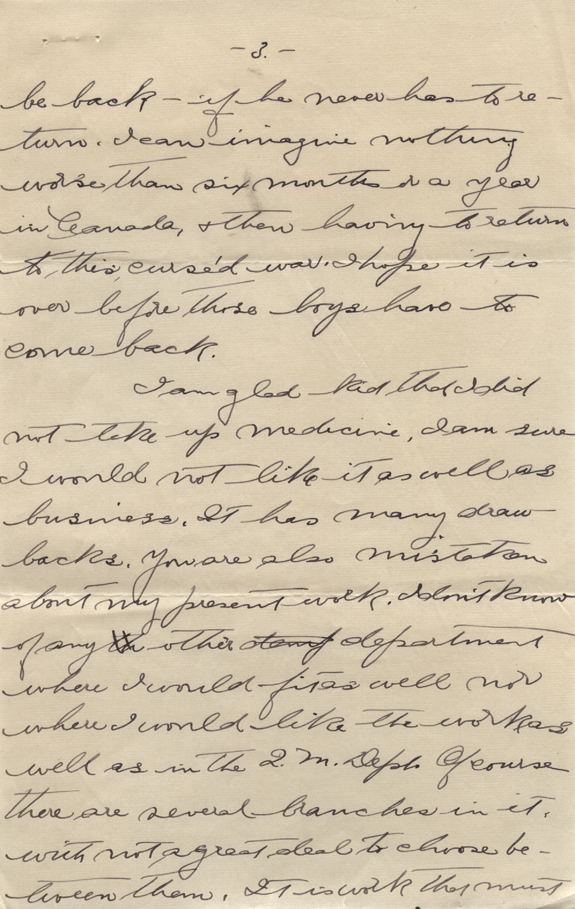 -3.-
be back - if he never has to re-
turn. I can imagine nothing
worse than six months or a year
in Canada, & then having to return
to this curséd war. I hope it is
over before those boys have to
come back.
I am glad kid that I did
not take up medicine, I am sure
I would not like it as well as
business. It has many draw
backs. You are also mistaken
about my present work. I don't know
of any other department
where I would fit as well nor
where I would like the work as
well as in the Q.M. Dept. Of course
there are several branches in it,
with not a great deal to choose be-
tween them. It is work that must